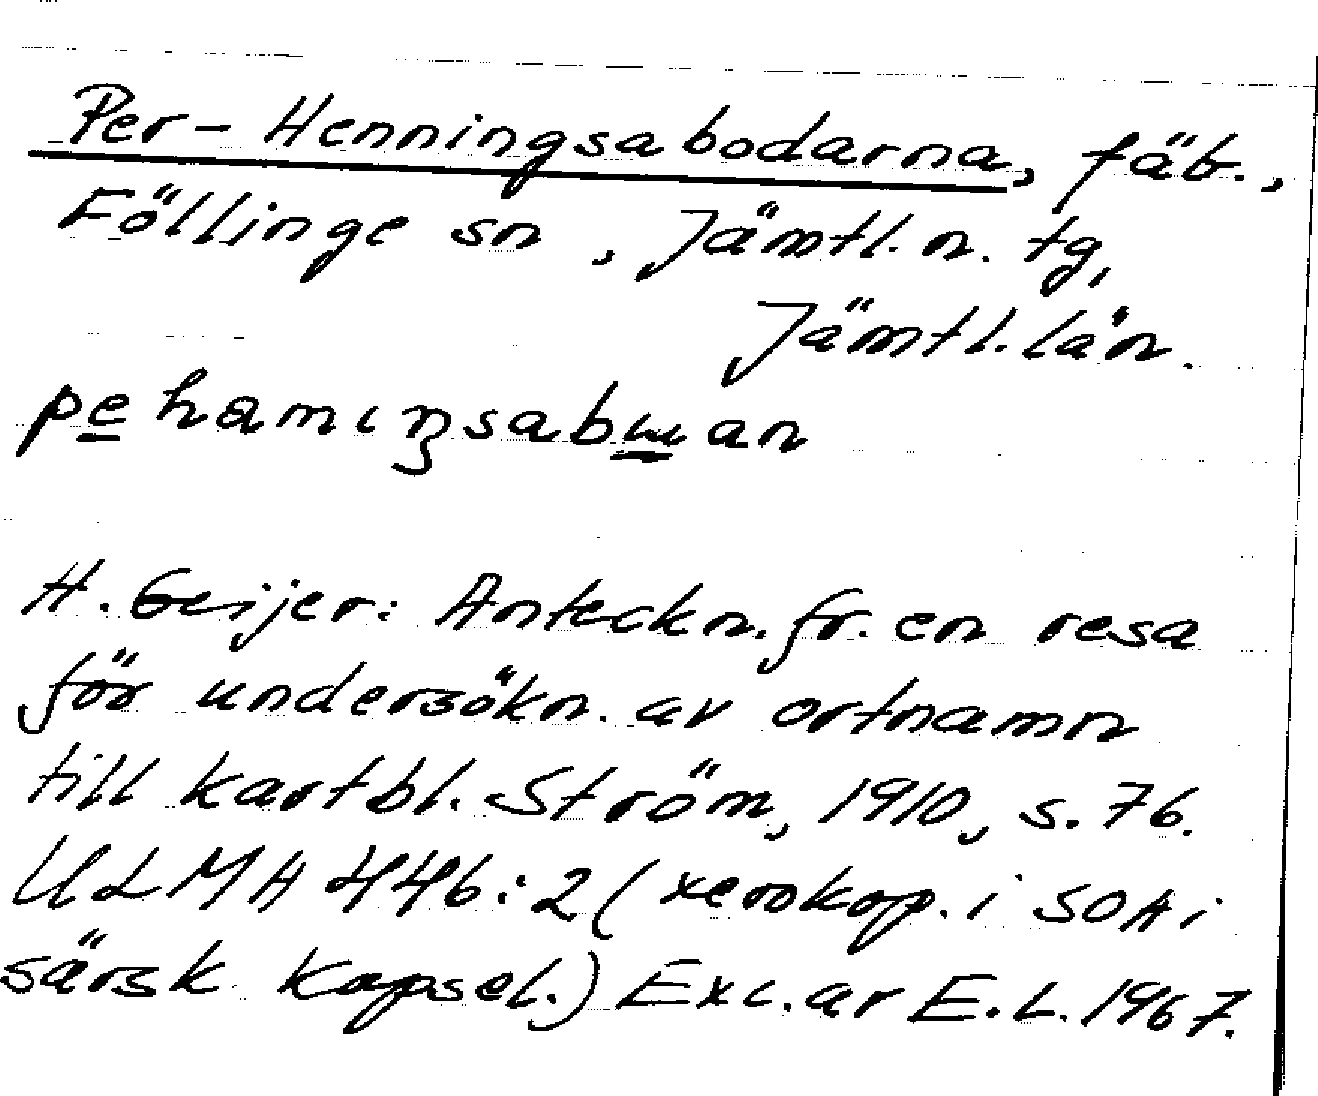 Per-Henningsabodarna, fäb.,
Föllinge sn, Jämtl. n. tg,
Jämtl. län.
H. Geijer: Anteckn. fr. en resa
för undersökn. av ortnamn
till kartbl. Ström, 1910, s. 76.
ULMA 446:2 (xerokop. i SOA i
särsk kapsel.) Exc. av E.L. 1967.